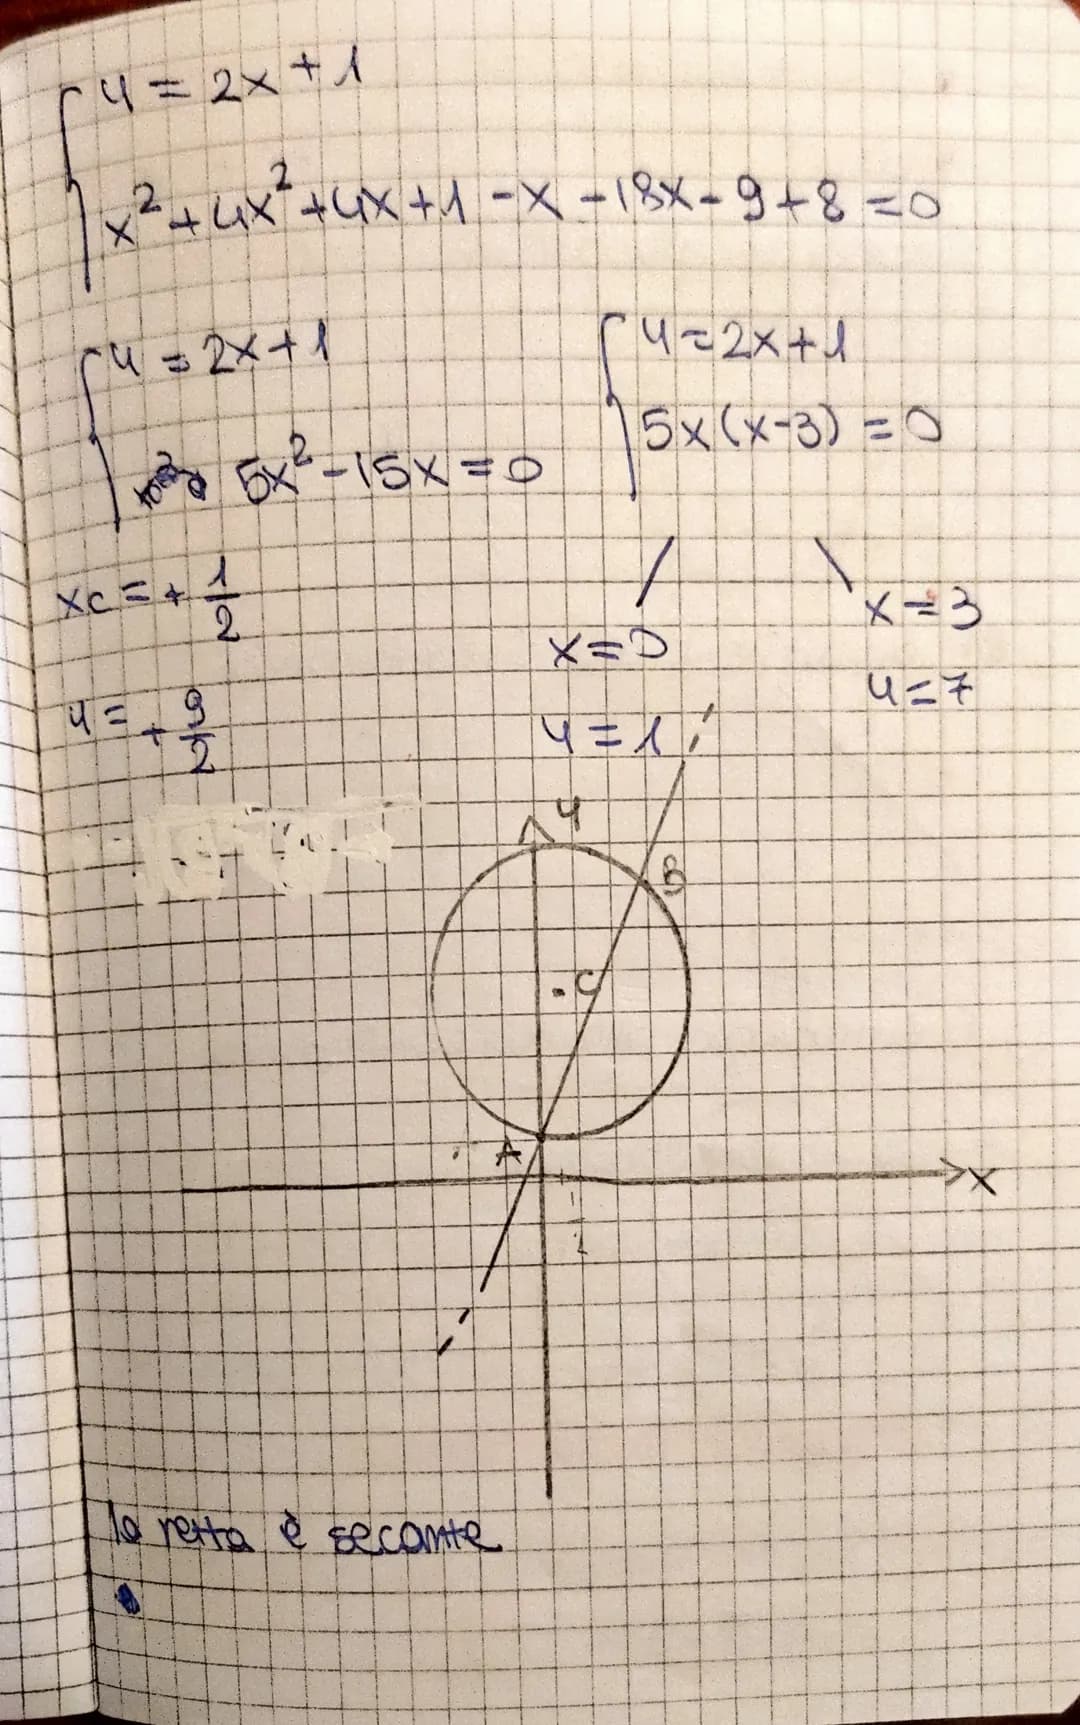 y = 2x + 1
x² + 4x² + 4x + 1 - x - 18x - 9 + 8 = 0
y = 2x + 1
5x² - 15x = 0
y = 2x + 1
5x(x-3) = 0
xc = + 1/2
y = + 9/2
x = 0
y = 1
x = 3
y = 7
y
B
C
A
x
la retta è secante